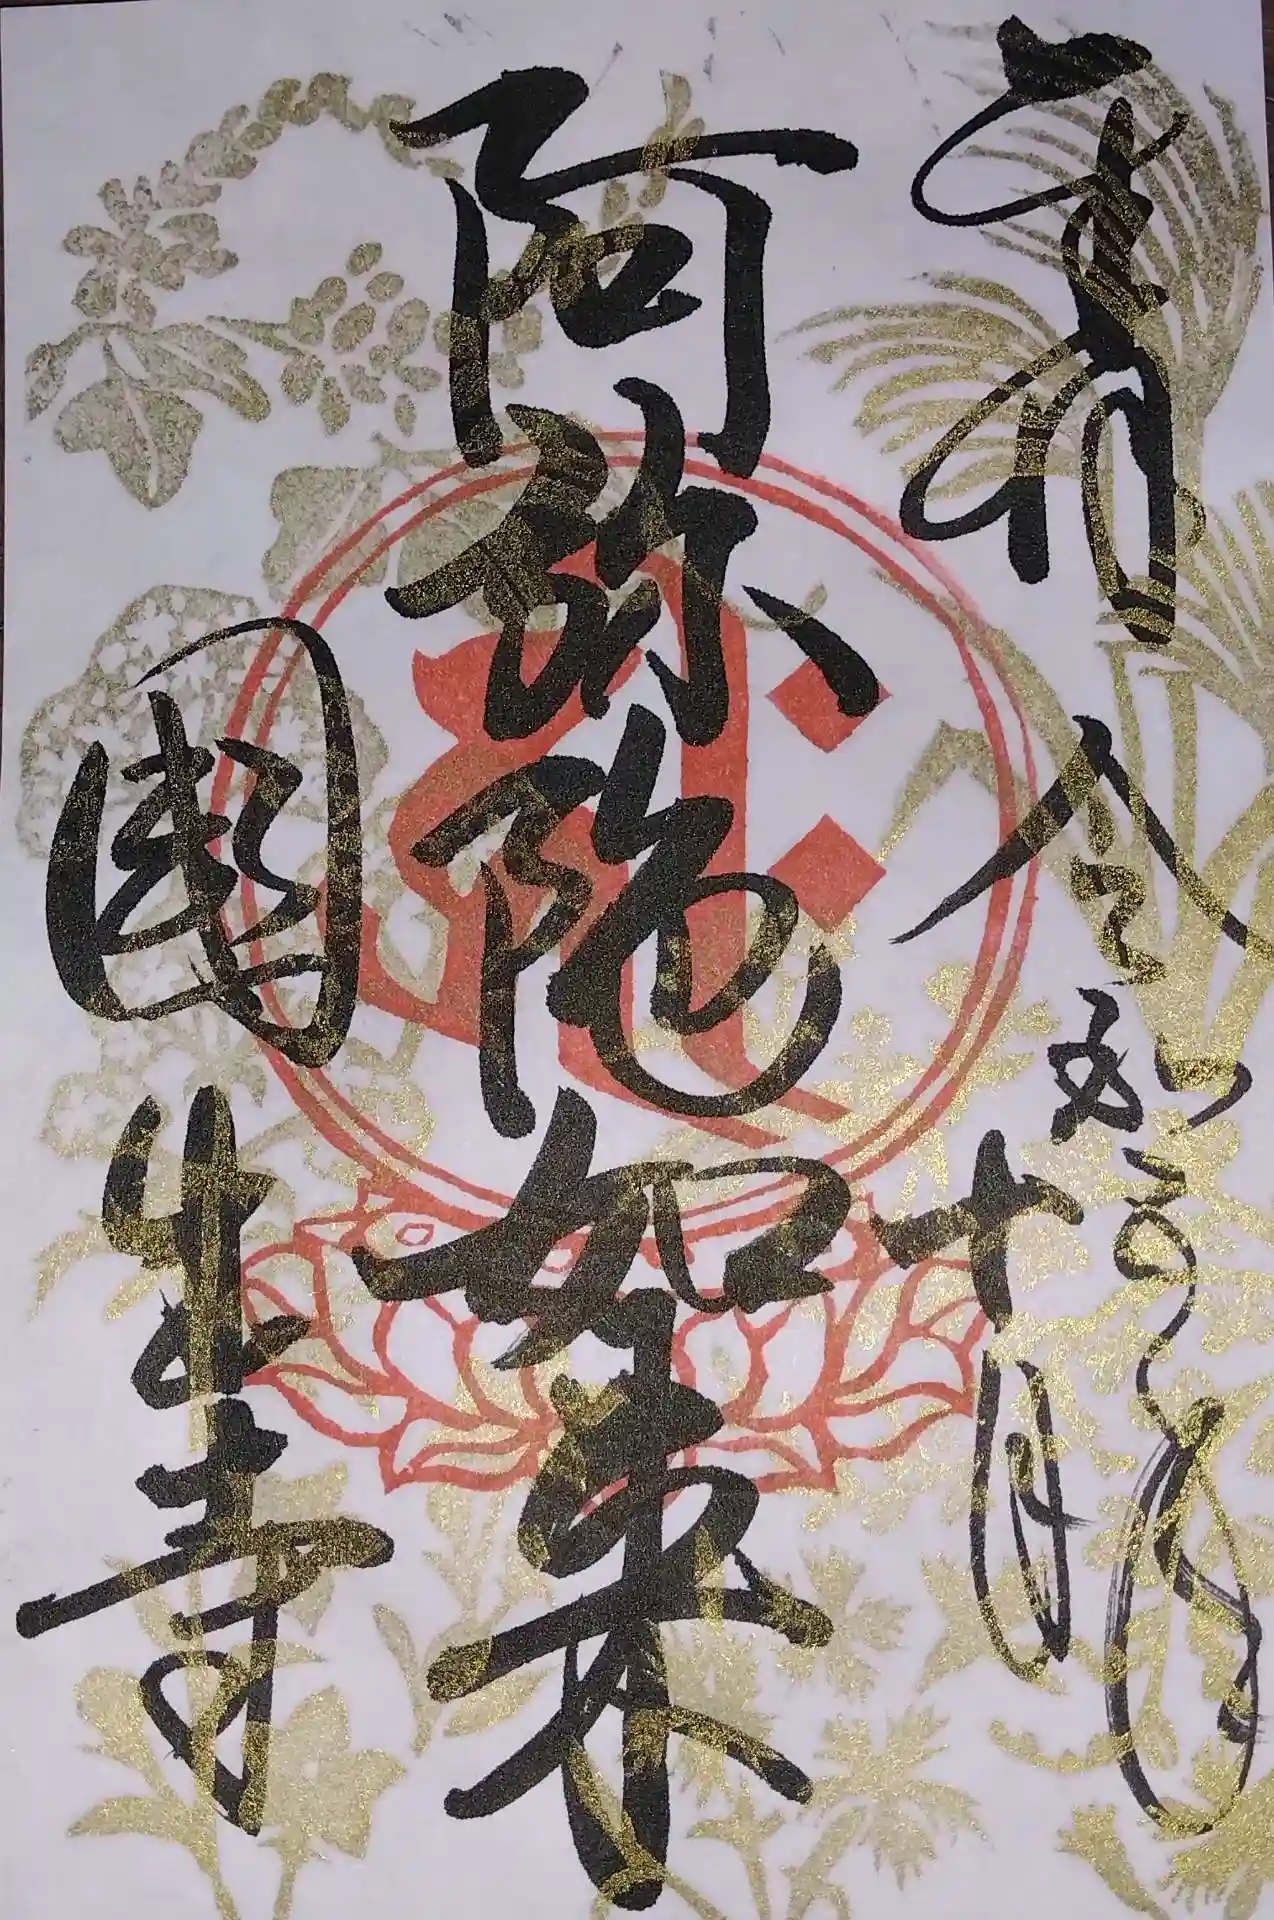 奉拝
令和三年
十月
阿弥陀如来
生寺